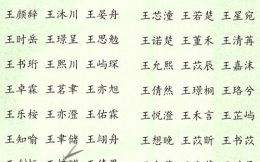 王颜绰 王沐川 王晏舟 王芯潼 王若楚 王星宛
王时岳 王璟呈 王思勉 王诺楚 王堇禾 王清苒
王书珩 王熙川 王屿琛 王允熙 王苡辰 王嘉沫
王卓霖 王茗聿 王亦旭 王倩然 王璟桐 王珞兮
王乐桉 王亦澄 王佑霖 王悦澄 王禾言 王芷屿
王知喻 王聿储 王翊舟 王想晚 王苡昕 王书苡